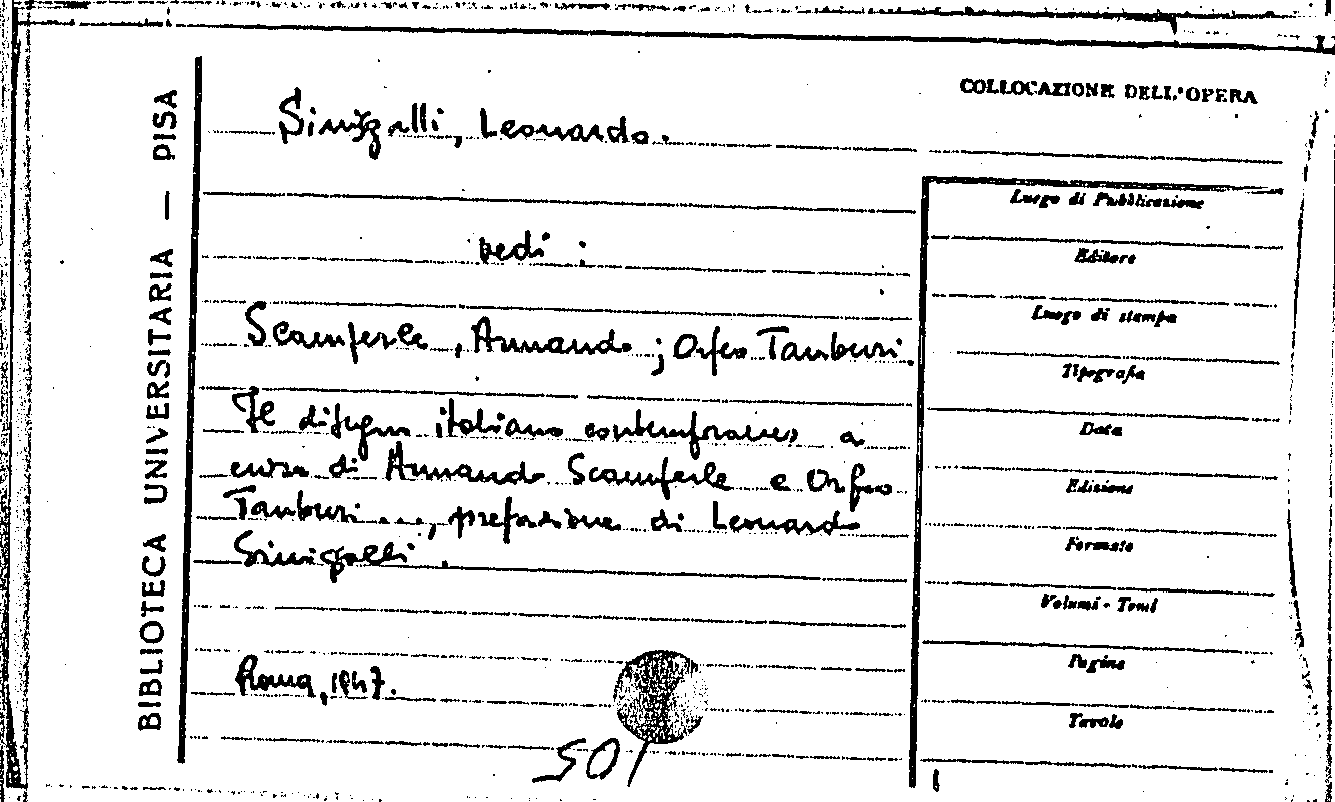 BIBLIOTECA UNIVERSITARIA — PISA
COLLOCAZIONE DELL'OPERA
Sinisgalli, Leonardo.
vedi :
Scamperle, Armando ; Orfeo Tamburi.
Il disegno italiano contemporaneo a
cura di Armando Scamperle e Orfeo
Tamburi ..., prefazione di Leonardo
Sinisgalli.
Roma, 1947.
501
Luogo di Pubblicazione
Editore
Luogo di stampa
Tipografia
Data
Edizione
Formato
Volumi - Tomi
Pagine
Tavole